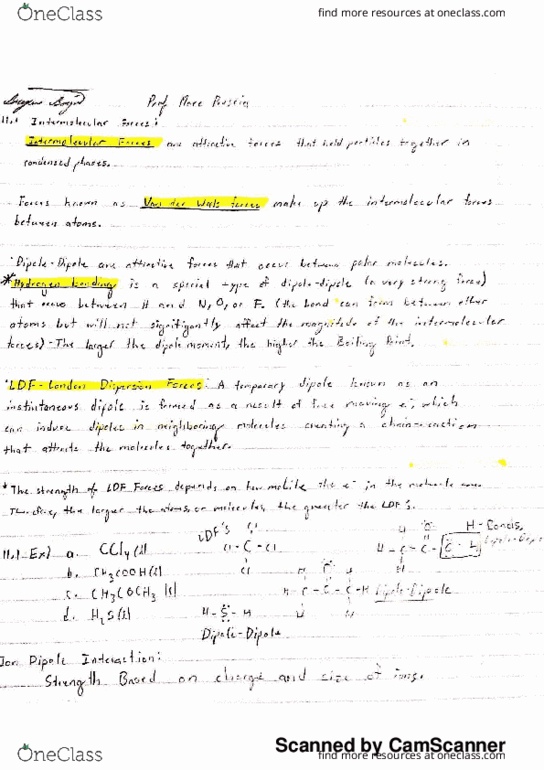 OneClass
find more resources at oneclass.com
Prof Marc
11.1 Intermolecular Forces:
Intermolecular Forces are attractive forces that hold particles together in
condensed phases.
Forces known as Van der Walls forces make up the intermolecular forces
between atoms.
Dipole-Dipole are attractive forces that occur between polar molecules.
*Hydrogen bonding is a special type of dipole-dipole (a very strong force)
that occur between H and N, O, or F. (the bond can form between other
atoms but will not signifigantly affect the magnitude of the intermolecular
forces) - The larger the dipole moment, the higher the Boiling Point.
LDF-London Dispersion Forces: A temporary dipole known as an
instintaneous dipole is formed as a result of free moving e⁻, which
can induce dipoles in neighboring molecules creating a chain-reaction
that attracts the molecules together.
* The strength of LDF Forces depends on how mobile the e⁻ in the molecule are.
the larger the atoms or molecules, the greater the LDF's.
11.1 Ex) a. CCl4 (l)
b. CH3COOH (l)
c. CH3COCH3 (l)
d. H2S (l)
LDF's
Cl
Cl - C - Cl
Cl
H - S - H
Dipole-Dipole
H O H
H - C - C - C - H Dipole-Dipole
H H
H O
H - C - C - O - H
H
H-
Dipole-
Ion Dipole Interaction:
Strength Based on charge and size of ions.
Scanned by CamScanner
OneClass
find more resources at oneclass.com